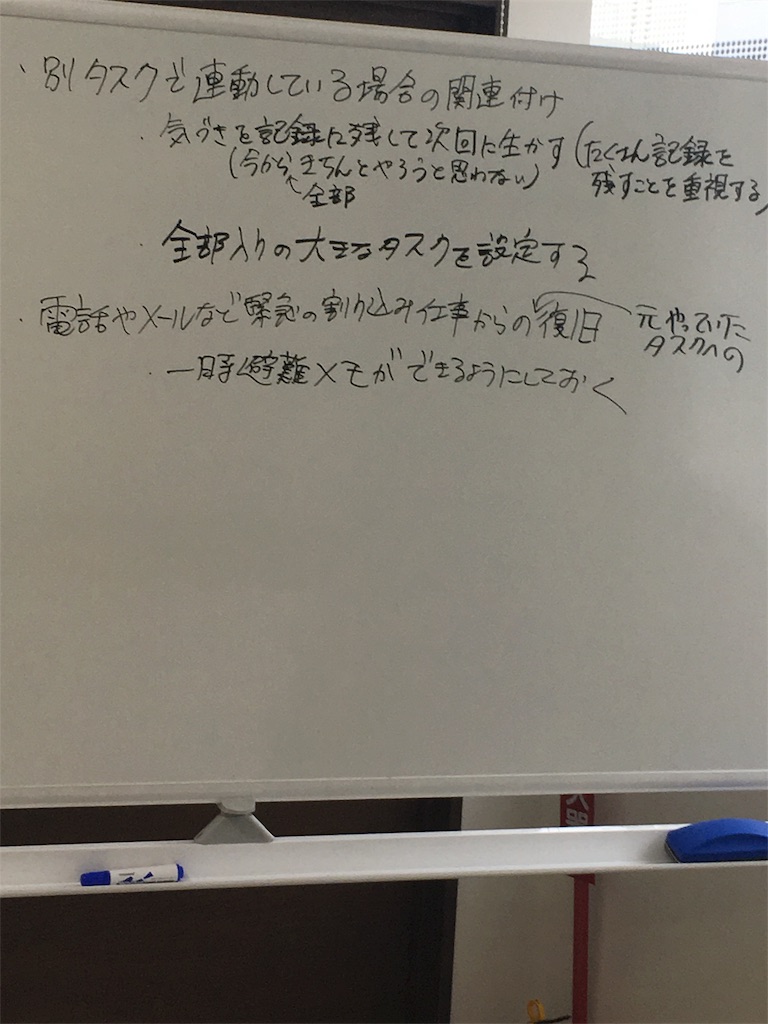 ・別タスクで連動している場合の関連付け
・気づきを記録に残して次回に生かす(たくさん記録を
残すことを重視する)
(今からきちんとやろうと思わない)
↑全部
・全部入りの大きなタスクを設定する
・電話やメールなど緊急の割り込み仕事からの復旧
元やっていた
タスクへの
・一時避難メモができるようにしておく